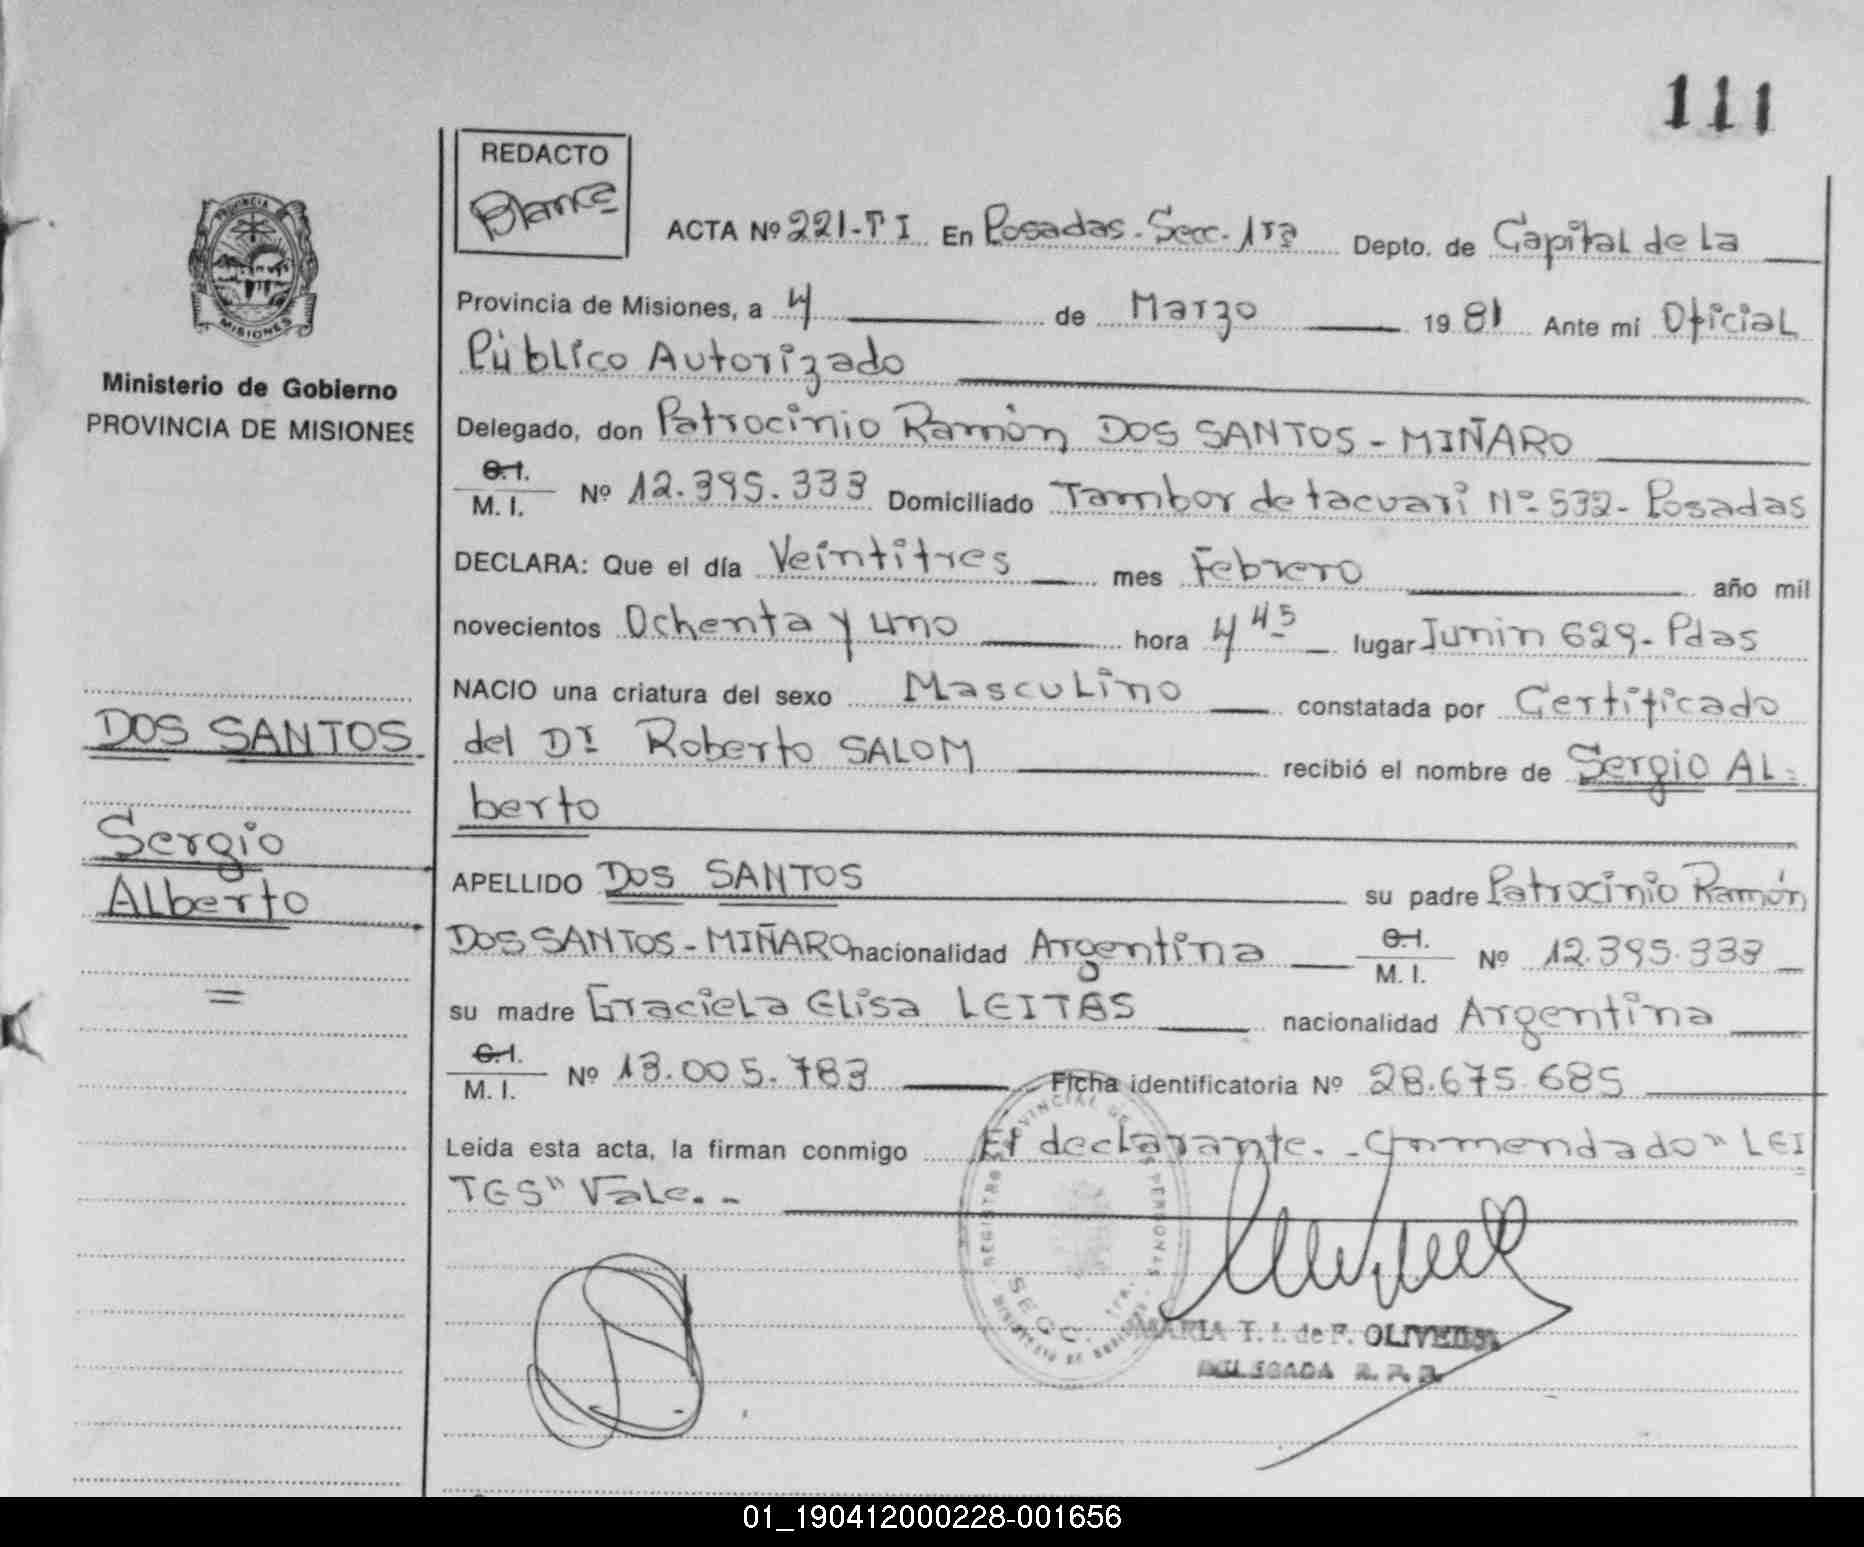 111
REDACTO
Blanca
PROVINCIA DE
MISIONES
Ministerio de Gobierno
PROVINCIA DE MISIONES
DOS SANTOS
Sergio
Alberto
=
ACTA Nº 221-T I En Posadas-Secc. 1ra Depto. de Capital de la
Provincia de Misiones, a 4 de Marzo 1981 Ante mí Oficial
Público Autorizado
Delegado, don Patrocinio Ramón DOS SANTOS - MIÑARO
C.I. M. I. Nº 12.395.333 Domiciliado Tambor de tacuari Nº 532- Posadas
DECLARA: Que el día Veintitres mes Febrero año mil
novecientos Ochenta y uno hora 4 45 lugar Junin 629- Pdas
NACIO una criatura del sexo Masculino constatada por Certificado
del Dr Roberto SALOM recibió el nombre de Sergio AL=
berto
APELLIDO DOS SANTOS su padre Patrocinio Ramón
DOS SANTOS - MIÑARO nacionalidad Argentina C.I. M. I. Nº 12.395.333
su madre Graciela Elisa LEITES nacionalidad Argentina
C.I. M. I. Nº 13.005.783 Ficha identificatoria Nº 28.675.685
Leída esta acta, la firman conmigo El declarante.- Enmendado" LEI
TES" Vale.-
SECC. 1ra.
MARIA T. I. de F. OLIVEIRA
DELEGADA R. P. P.
01_190412000228-001656